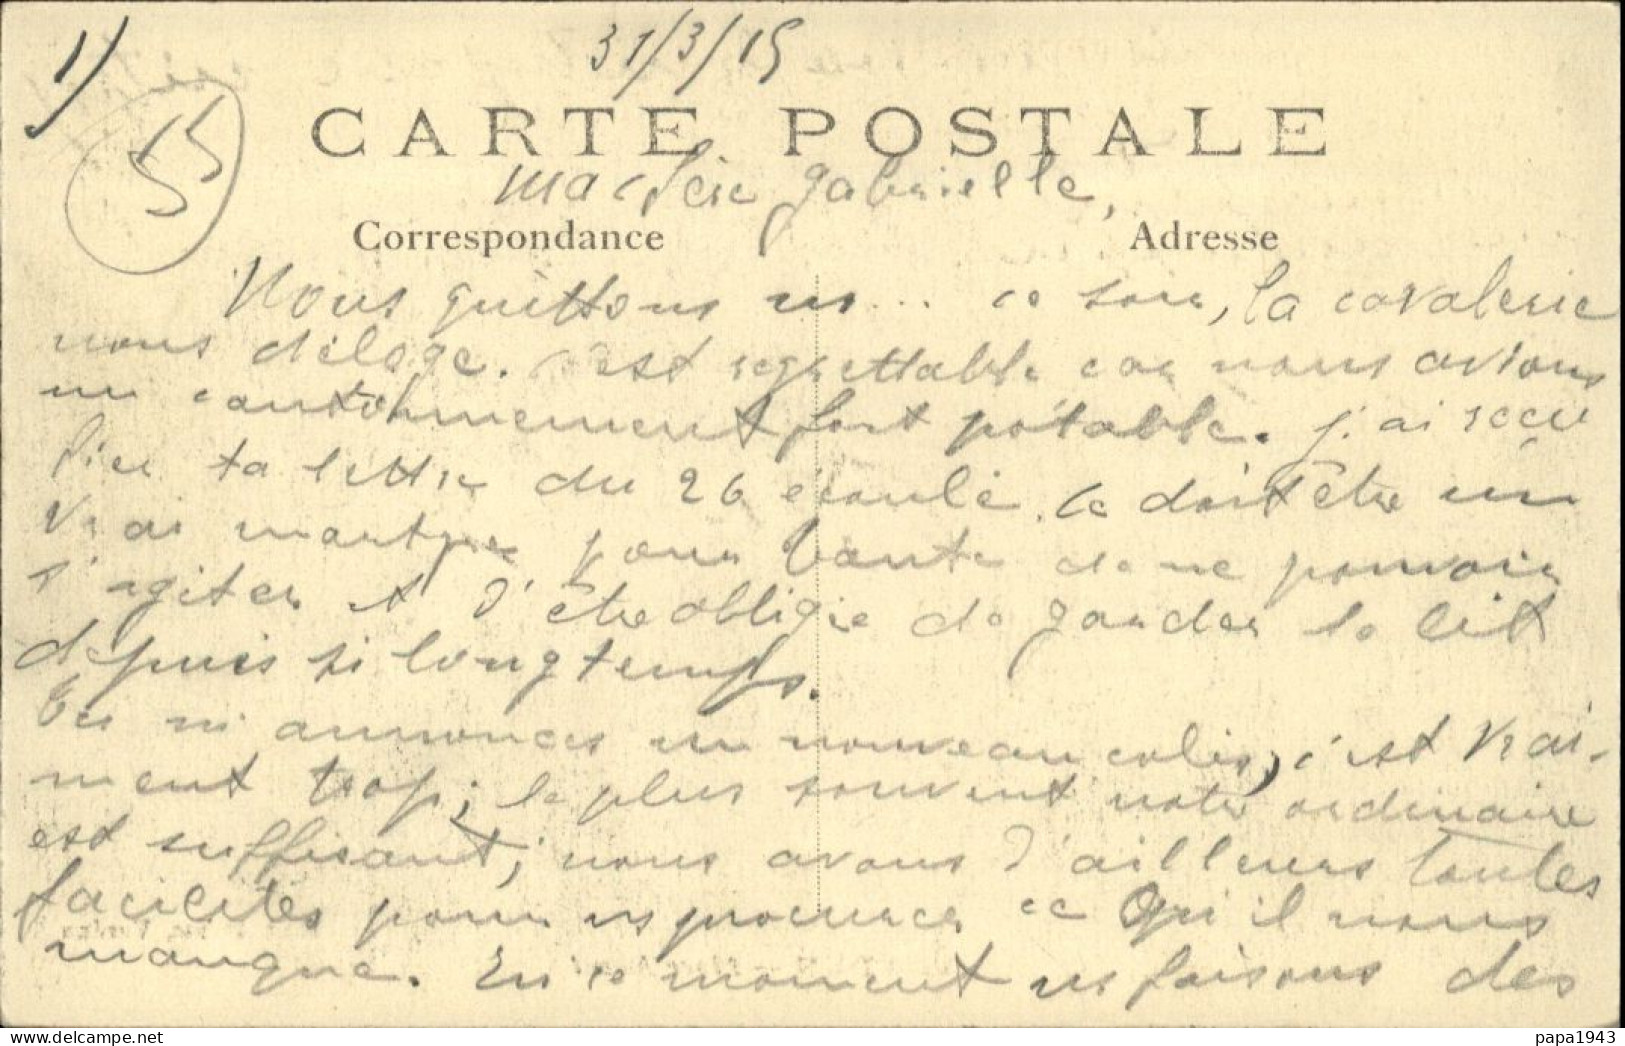 1)
31/3/15
55
CARTE POSTALE
Ma chère Gabrielle,
Correspondance Adresse
Nous quittons ... ce soir, la cavalerie
nous déloge. C'est regrettable car nous avions
un cantonnement fort potable. J'ai reçu
hier ta lettre du 26 écoulé. Ce doit être un
vrai martyre pour tante de ne pouvoir
s'agiter et d'être obligée de garder le lit
depuis si longtemps.
Tu m'annonces un nouveau colis, c'est vrai-
ment trop; le plus souvent notre ordinaire
est suffisant; nous avons d'ailleurs toutes
facilités pour ns procurer ce qu'il nous
manque. En ce moment ns faisons des
delcampe.net
papa1943